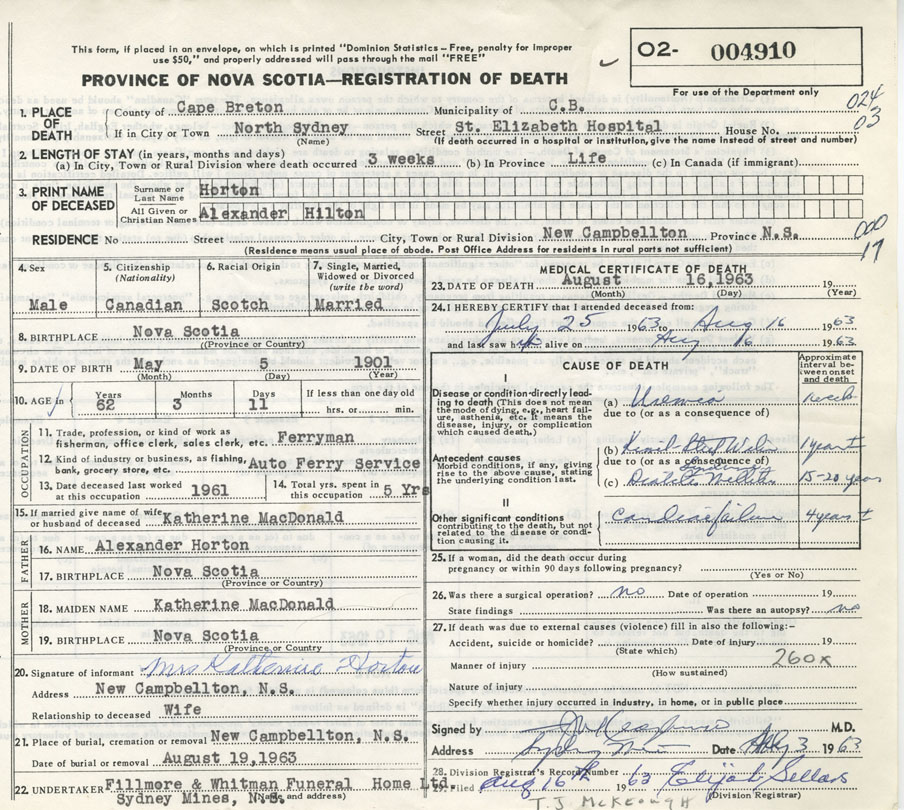 This form, if placed in an envelope, on which is printed "Dominion Statistics – Free, penalty for improper
use $50," and properly addressed will pass through the mail "FREE"
PROVINCE OF NOVA SCOTIA—REGISTRATION OF DEATH
O2- 004910
For use of the Department only
024
03
1. PLACE OF DEATH County of Cape Breton Municipality of C.B.
If in City or Town North Sydney Street St. Elizabeth Hospital House No.
(Name) (If death occurred in a hospital or institution, give the name instead of street and number)
2. LENGTH OF STAY (in years, months and days)
(a) In City, Town or Rural Division where death occurred 3 weeks (b) In Province Life (c) In Canada (if immigrant)
3. PRINT NAME OF DECEASED Surname or Last Name Horton
All Given or Christian Names Alexander Hilton
RESIDENCE No Street City, Town or Rural Division New Campbellton Province N.S.
(Residence means usual place of abode. Post Office Address for residents in rural parts not sufficient)
000
17
4. Sex 5. Citizenship (Nationality) 6. Racial Origin 7. Single, Married, Widowed or Divorced (write the word)
Male Canadian Scotch Married
8. BIRTHPLACE Nova Scotia
(Province or Country)
9. DATE OF BIRTH May 5 1901
(Month) (Day) (Year)
10. AGE in Years 62 Months 3 Days 11 If less than one day old hrs. or min.
OCCUPATION
11. Trade, profession, or kind of work as fisherman, office clerk, sales clerk, etc. Ferryman
12. Kind of industry or business, as fishing, bank, grocery store, etc. Auto Ferry Service
13. Date deceased last worked at this occupation 1961
14. Total yrs. spent in this occupation 5 Yrs
15. If married give name of wife or husband of deceased Katherine MacDonald
FATHER
16. NAME Alexander Horton
17. BIRTHPLACE Nova Scotia
(Province or Country)
MOTHER
18. MAIDEN NAME Katherine MacDonald
19. BIRTHPLACE Nova Scotia
(Province or Country)
20. Signature of informant Mrs Katherine Horton
Address New Campbellton, N.S.
Relationship to deceased Wife
21. Place of burial, cremation or removal New Campbellton, N.S.
Date of burial or removal August 19,1963
22. UNDERTAKER Fillmore & Whitman Funeral Home Ltd
Sydney Mines, N.S.
(Name and address)
MEDICAL CERTIFICATE OF DEATH
23. DATE OF DEATH August 16,1963 19
(Month) (Day) (Year)
24. I HEREBY CERTIFY that I attended deceased from:
July 25 1963 to Aug 16 1963
and last saw him alive on Aug 16 1963
CAUSE OF DEATH
Approximate interval between onset and death
I
Disease or condition directly leading to death (This does not mean the mode of dying, e.g., heart failure, asthenia, etc. It means the disease, injury, or complication which caused death.)
(a) Uremia 1 week
due to (or as a consequence of)
Antecedent causes
Morbid conditions, if any, giving rise to the above cause, stating the underlying condition last.
(b) Wilson 1 year ±
due to (or as a consequence of)
(c) Diabetes Mellitus 15-20 years
II
Other significant conditions
contributing to the death, but not related to the disease or condition causing it.
Cardiac failure 4 years ±
25. If a woman, did the death occur during
pregnancy or within 90 days following pregnancy?
(Yes or No)
26. Was there a surgical operation? no Date of operation 19
State findings Was there an autopsy? no
27. If death was due to external causes (violence) fill in also the following:–
Accident, suicide or homicide? Date of injury 19
(State which)
260x
Manner of injury
(How sustained)
Nature of injury
Specify whether injury occurred in industry, in home, or in public place
Signed by M.D.
Address Sydney Mines Date 3 1963
28. Division Registrar's Record Number
29. Filed Aug 16th 1963 Elijah Sellars
(Division Registrar)
T. J. McKeough